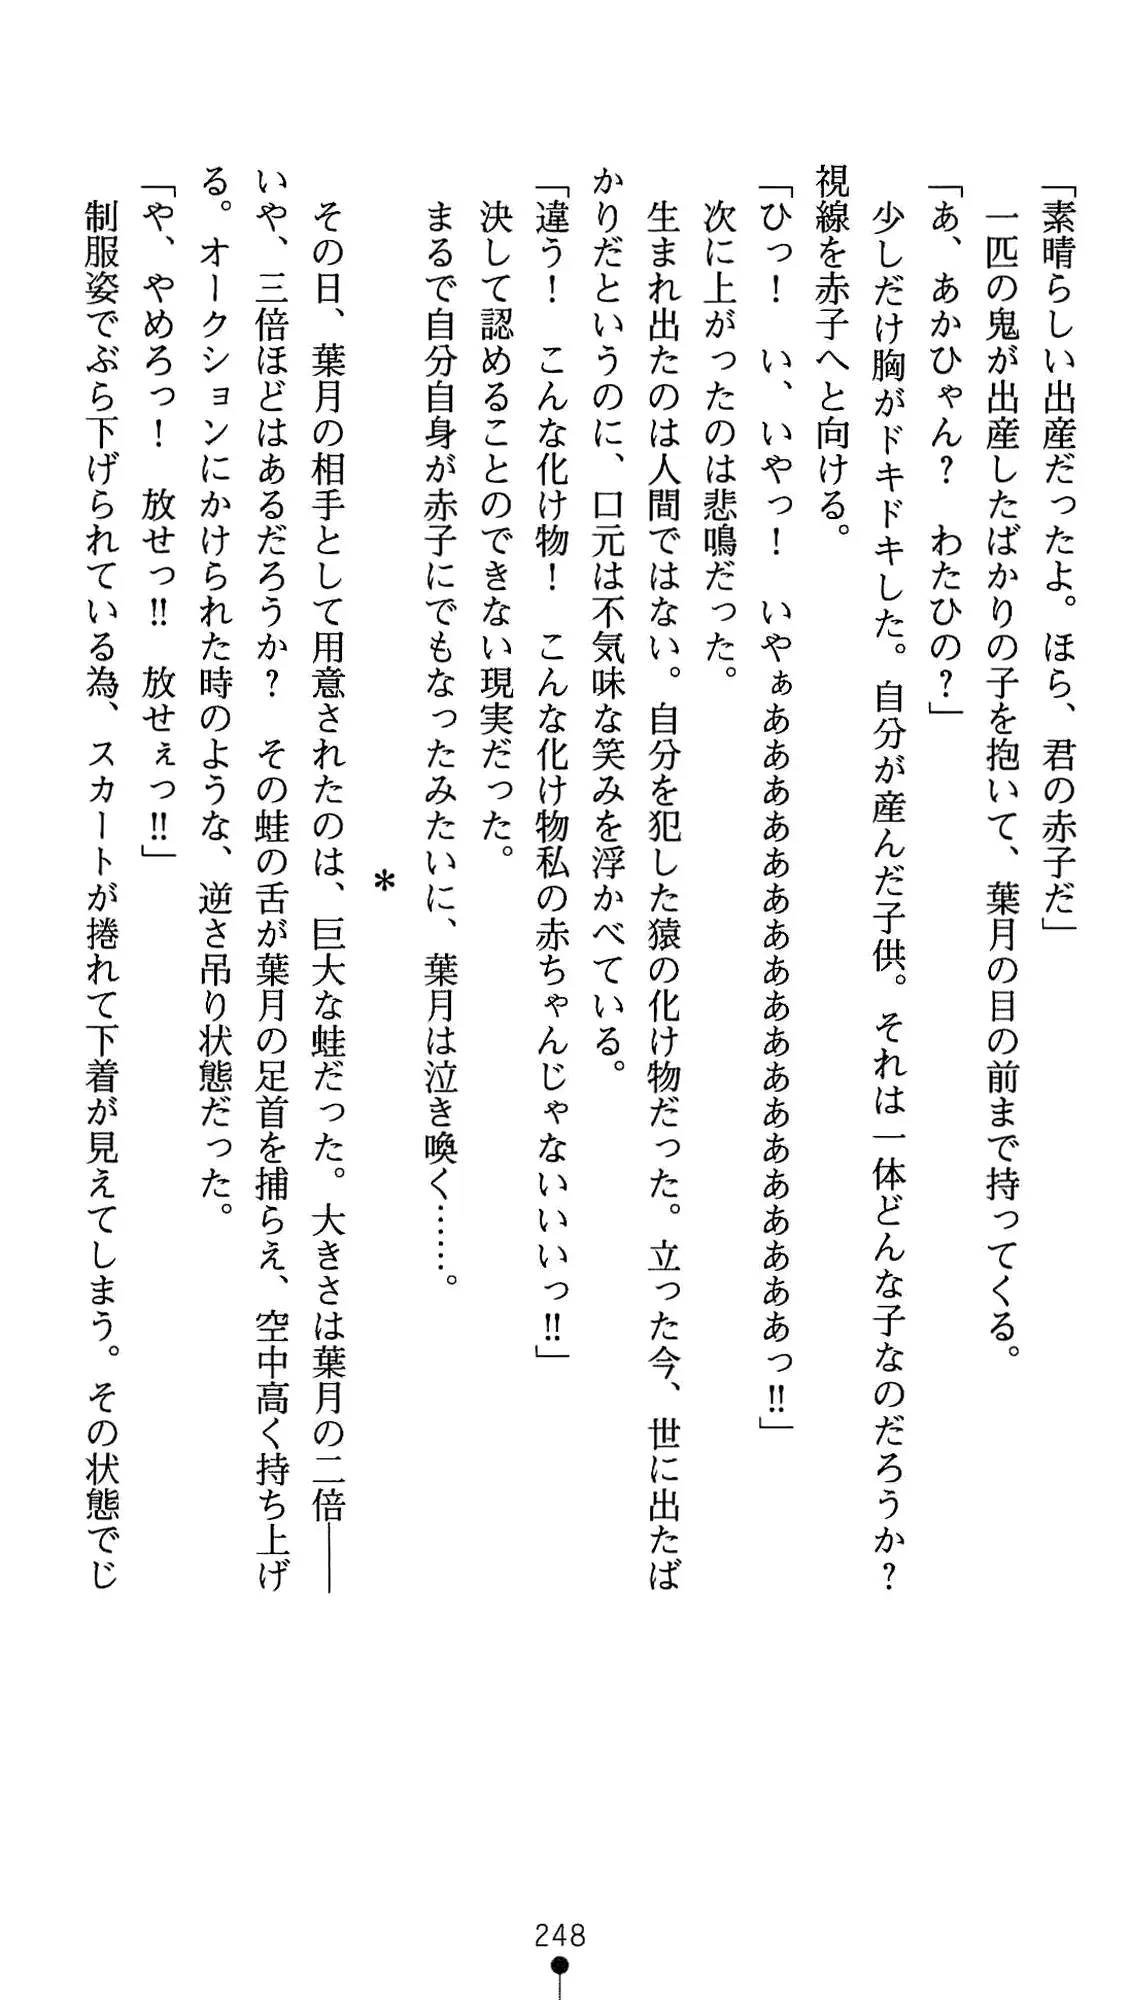 「素晴らしい出産だったよ。ほら、君の赤子だ」
一匹の鬼が出産したばかりの子を抱いて、葉月の目の前まで持ってくる。
「あ、あかひゃん？　わたひの？」
少しだけ胸がドキドキした。自分が産んだ子供。それは一体どんな子なのだろうか？
視線を赤子へと向ける。
「ひっ！　い、いやっ！　いやぁああああああああああああああああああっ‼」
次に上がったのは悲鳴だった。
生まれ出たのは人間ではない。自分を犯した猿の化け物だった。立った今、世に出たば
かりだというのに、口元は不気味な笑みを浮かべている。
「違う！　こんな化け物！　こんな化け物私の赤ちゃんじゃないいいっ‼」
決して認めることのできない現実だった。
まるで自分自身が赤子にでもなったみたいに、葉月は泣き喚く……。
＊
その日、葉月の相手として用意されたのは、巨大な蛙だった。大きさは葉月の二倍――
いや、三倍ほどはあるだろうか？　その蛙の舌が葉月の足首を捕らえ、空中高く持ち上げ
る。オークションにかけられた時のような、逆さ吊り状態だった。
「や、やめろっ！　放せっ‼　放せぇっ‼」
制服姿でぶら下げられている為、スカートが捲れて下着が見えてしまう。その状態でじ
248